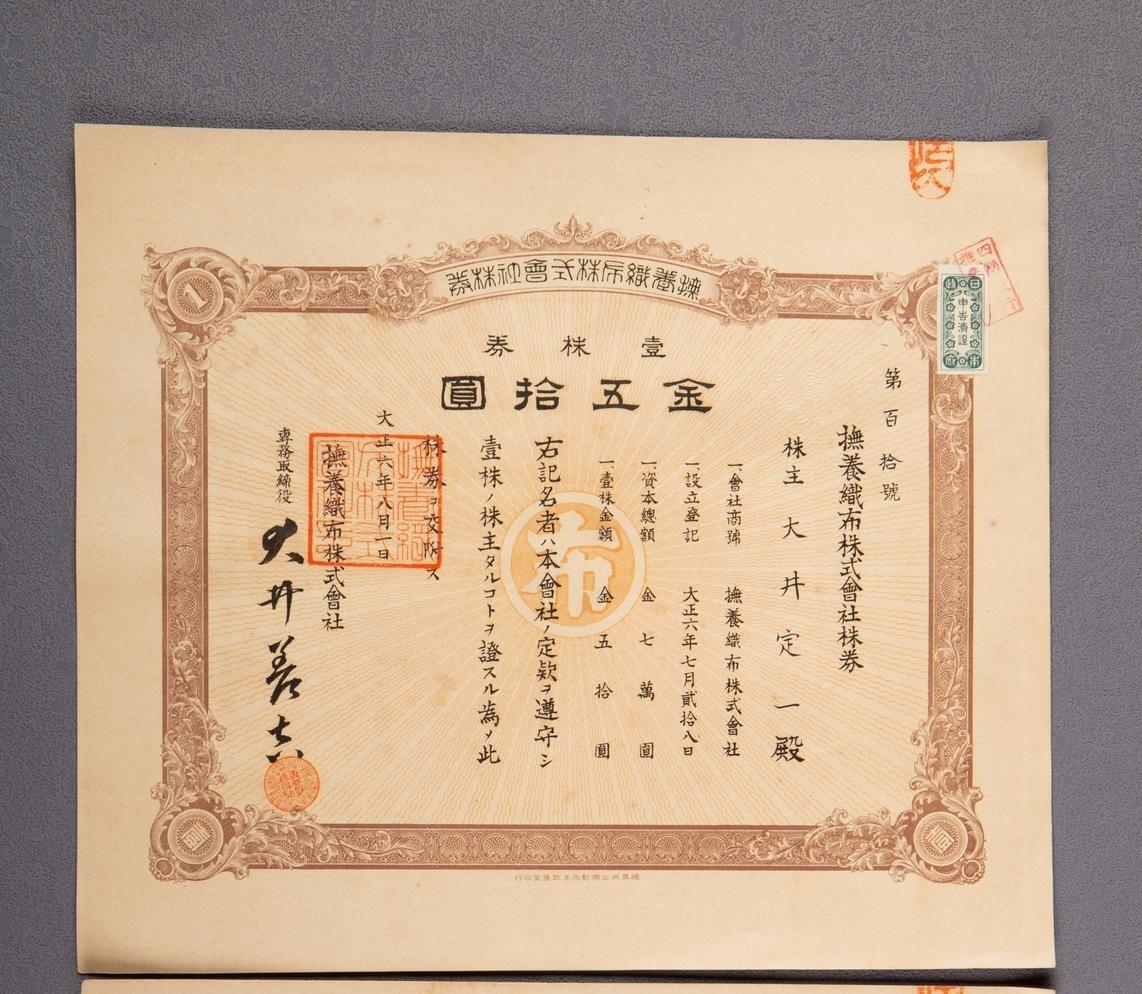 撫養織布株式會社株券
壹株券
金五拾圓
第百拾號
撫養織布株式會社株券
株主 大井定一殿
一、會社商號 撫養織布株式會社
一、設立登記 大正六年七月貳拾八日
一、資本總額 金七萬圓
一、壹株金額 金五拾圓
右記名者ハ本會社ノ定欵ヲ遵守シ
壹株ノ株主タルコトヲ證スル為メ此
株券ヲ交附ス
大正六年八月一日
撫養織布株式會社
專務取締役
大井
布
1